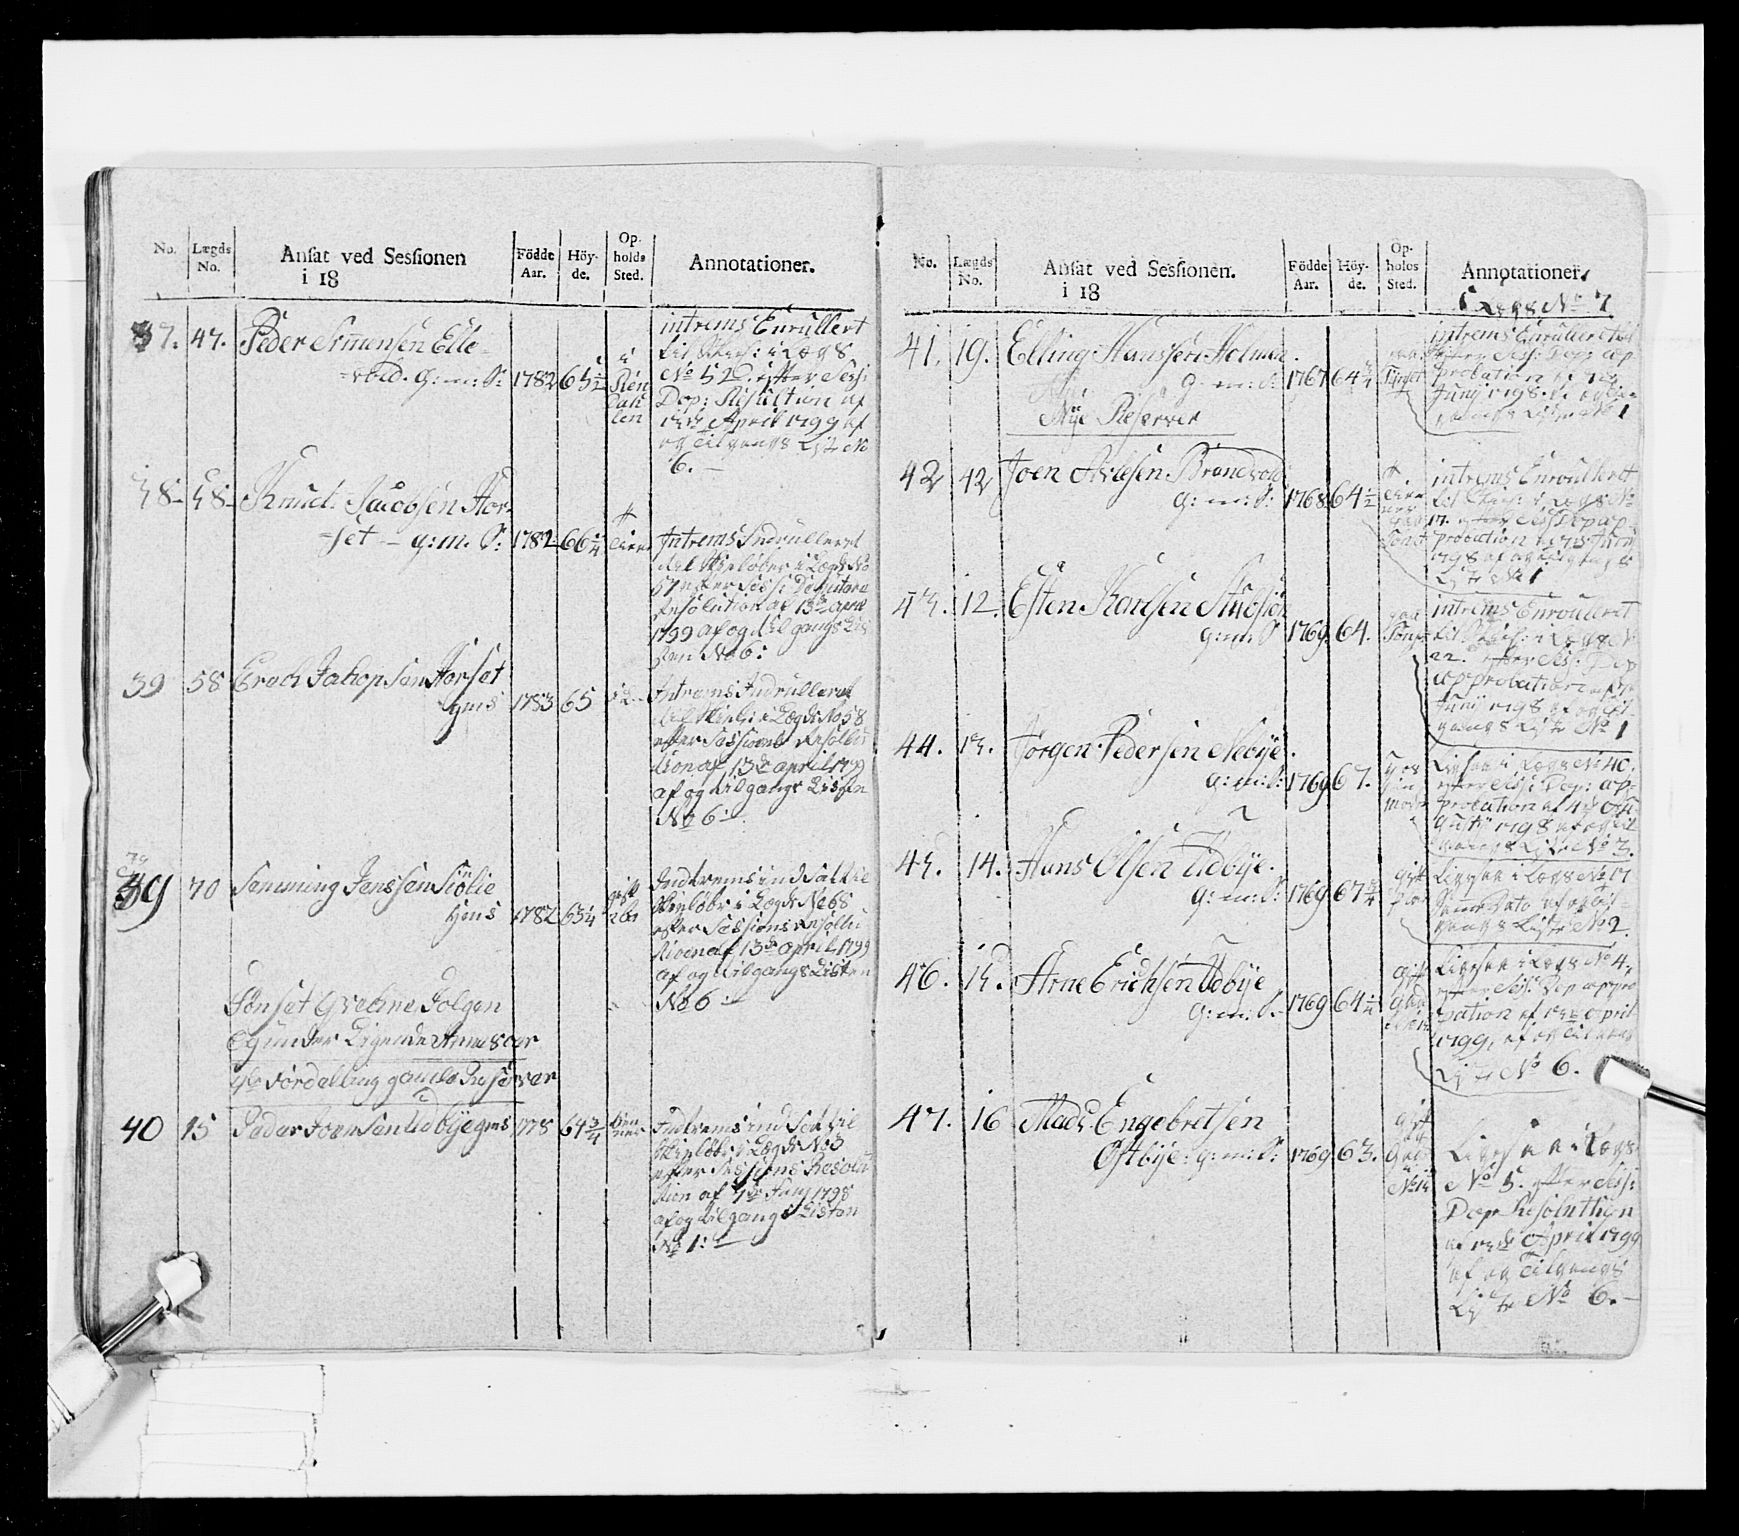 No. Lægds No. Ansat ved Sessionen i 18 Födde Aar. Höy-de. Op-holds Sted. Annotationer.
37. 47. Peder Simensen Elle-
vold. g: m: S: 1782 65 1/2
interims Enrullert
til i Lægs
No 52. efter Sess:
Dep: Resolution af
13de April 1799 af
og Tilgangs Liste No
6. —
38 48 Knud Jacobsen Hor-
set — g: m. S: 1782 66 1/4
Intrems Indrulleret
til Skieløber i Lægds No
57 efter Sess: Deputara
Resolution af 13de April
1799 af og til gangs Lis
ten No 6:
39 58 Erach Jakopsen Horset
gms 1783 65
Intrems Indrulleret
til Skiel: i Lægds No 58
efter Sessions Resolu
tion af 13de april 1799
af og tilgangs Listen
No 6:
39 70 Semming Janssen Siölie
1782 63 1/4
Indtrems ind Sat til
Skieløber i Lægds No 68
efter Sessions Resolu
tion af 13de april 1799
af og tilgangs Listen
No 6:
Tönset Grebene Folgen
Ligende Annexer
fordelling gamle Reserver
40 15 Peder Joensen Udbye gms 1778 64 3/4
Indtrems ind Sat til
Skieløber i Lægds No 3
efter Sessions Resolu
tion af 7de Juny 1798
af og tilgangs Listen
No 1: —
No. Lægds No. Ansat ved Sessionen. i 18 Födde Aar. Höy-de. Op-holds Sted. Annotationer.
Lægs No 7
41. 19. Elling Hansen Holmen.
g: m: S: 1767 64 3/4
interims Enrulleret til
efter Sess: Dep: ap-
probation af 7de
Juny 1798. af og til-
gangs Liste No 1
Nye Reserver
42 42 Joen Arnesen Brandvold
g: m: S: 1768 64 1/2
interims Enroulleret
til i Lægs No
17. efter Sess: Dep ap-
probation af 7de Juny
1798 af og tilgangs
Liste No 1
43. 12 Esten Karlsen Stuesjön
g: m: S 1769 64.
interims Enroulleret
til i Lægs No
22. efter Sess: Dep
approbation af 7de
Juny 1798 af og til-
gangs Liste No 1
44. 13. Jörgen Pedersen Nebye.
g: m: S: 1769 67.
Ligesaa i Lægs No 40.
efter Sess: Dep: ap-
probation af 4de Au-
gusty 1798 af og til
gangs Liste No 3.
45. 14. Hans Olsen Udbye.
g: m: S: 1769 67 3/4
Ligesaa i Lægs No 17
Samme Dato af og til-
gangs Liste No 2.
46. 15. Arne Erichsen Udbye
g: m: S. 1769 64 1/4
Ligesaa i Lægs No 4,
efter Sess: Dep appro
bation af 13de April
1799, af og Tilgangs
Liste No 6.
47. 16 Mads Engebretsen
Östbye: g: m: S: 1769 63.
Ligesaa i Lægs
No 5. efter Sess:
Dep Resolution
af 13de April 1799
af og Tilgangs
Liste No 6.—